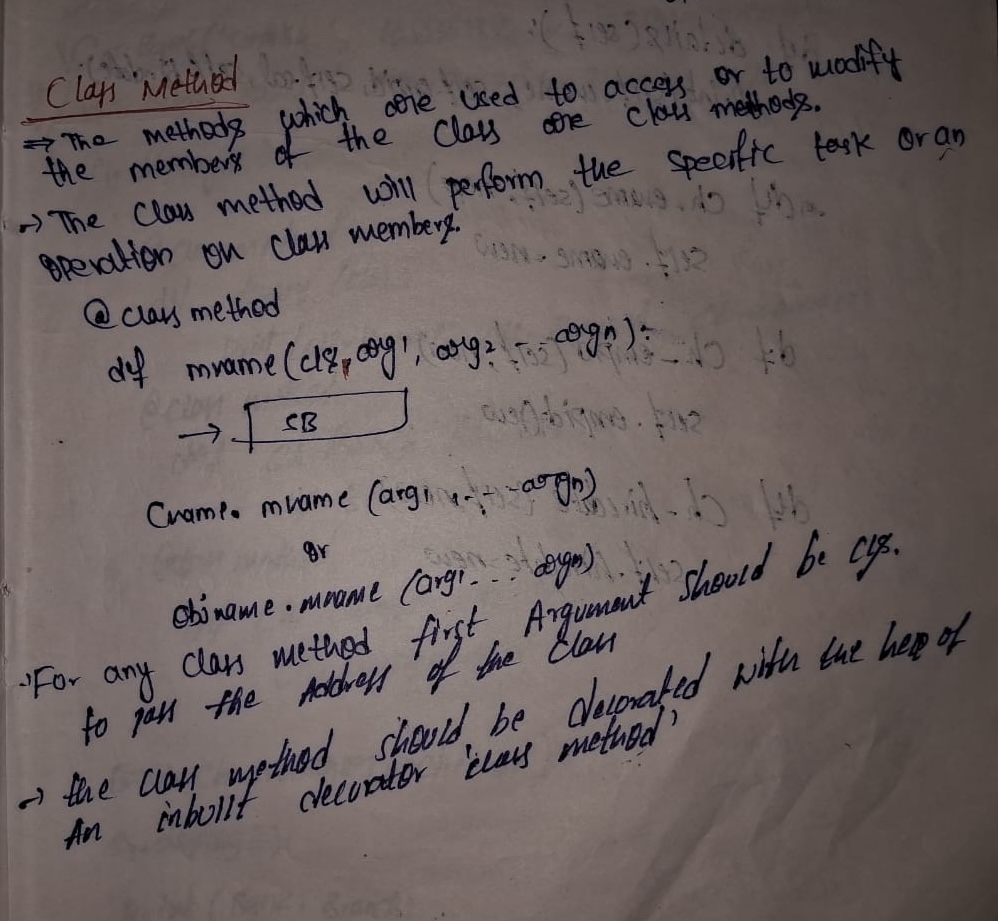 Class Method
⇒ The methods which are used to access or to modify
the members of the class are class methods.
→ The class method will perform the specific task or an
operation on class members.
@ class method
def mname (cls, arg1, arg2 - - argn):
→ SB
Cname. mname (arg1, - - - argn)
or
Objname. mname (arg1 - - - argn)
→ For any class method first Argument should be cls.
to pass the Address of the class
→ the class method should be decorated with the help of
An inbuilt decorator 'class method'